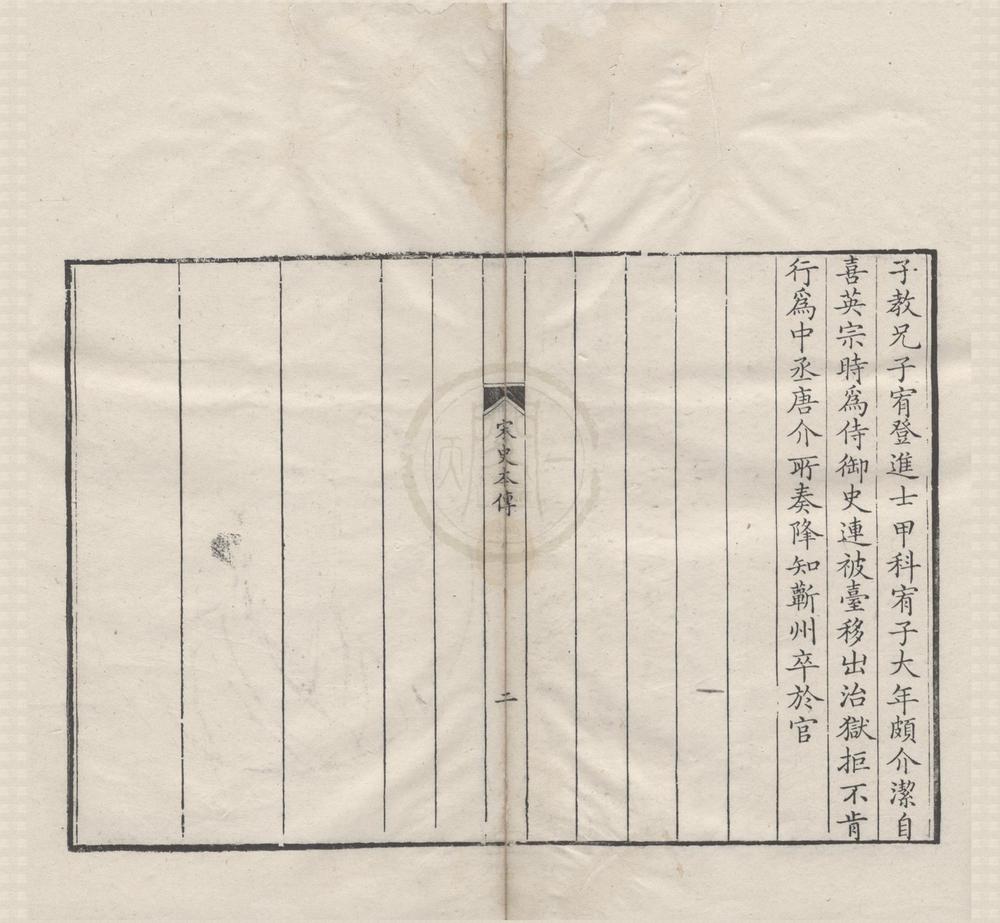 子教兄子宥登進士甲科宥子大年頗介潔自
喜英宗時爲侍御史連被臺移出治獄拒不肯
行爲中丞唐介所奏降知蘄州卒於官
宋史本傳
二